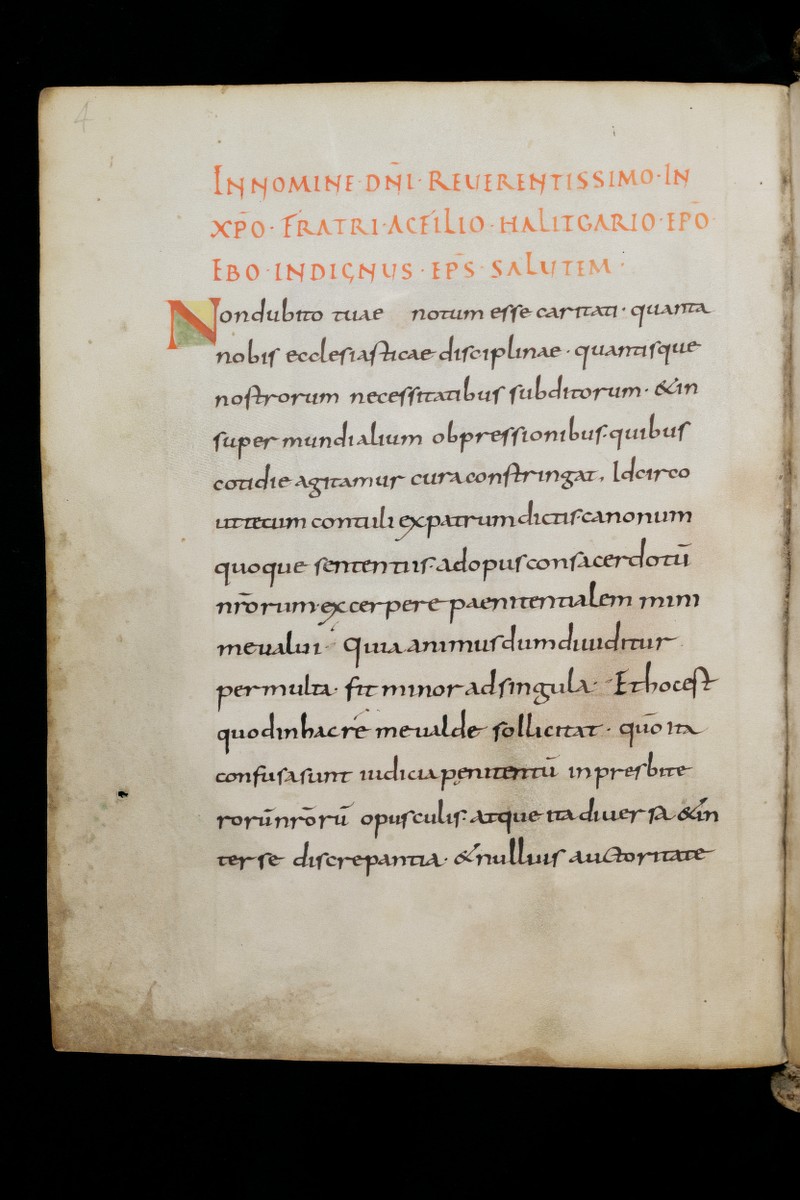 4
IN NOMINE DN̄I · REUERENTISSIMO · IN
XP̄O · FRATRI · AC FILIO · HALITGARIO · EP̄O
EBO · INDIGNUS · EP̄S · SALUTEM ·
Non dubito tuae notum esse caritati · quanta
nobis ecclesiasticae disciplinae · quantisque
nostrorum necessitatibus subditorum · & in
super mundialium obpressionibus · quibus
cotidie agitamur cura constringat. Idcirco
ut tecum contuli ex patrum dictis canonum
quoque sententiis · ad opus consacerdotū
nr̄orum · excerpere paenitentialem mini
me ualui · Quia animus dum diuiditur
per multa · fit minor ad singula · Et hoc est
quod in hac re me ualde sollicitat · quō ita
confusa sunt iudicia penitentū in presbite
rorū nr̄orū opusculis · atque ita diuersa & in
ter se discrepantia · & nullius auctoritate